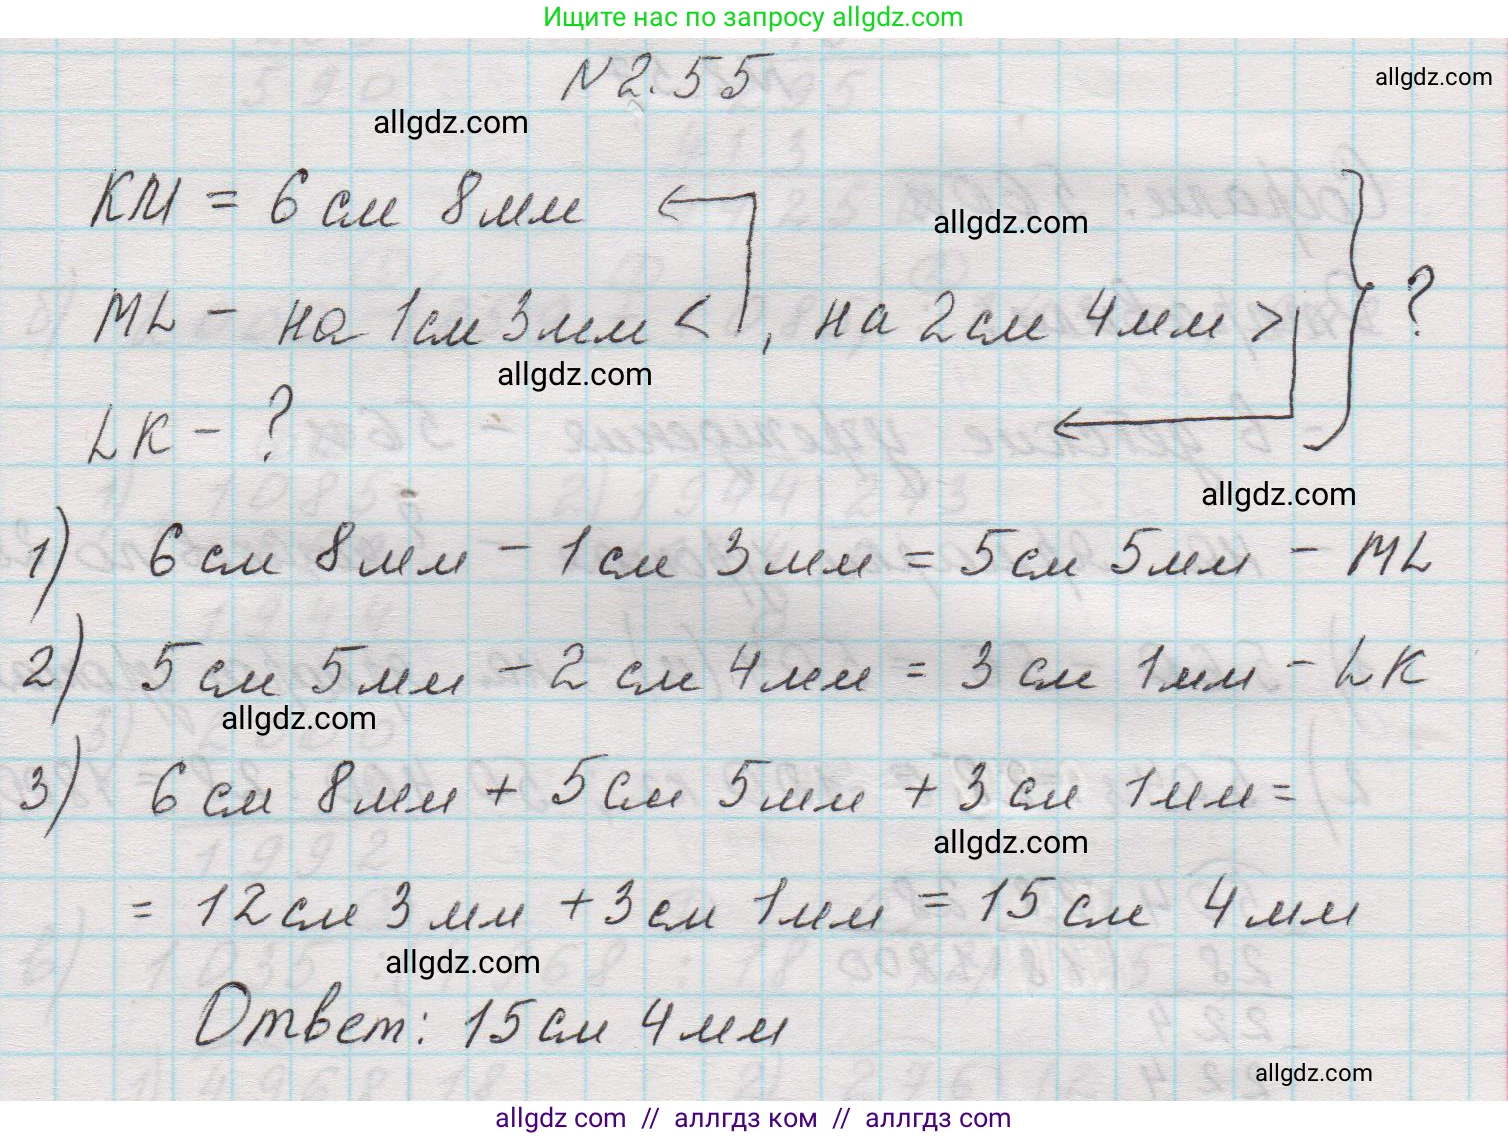 Ищите нас по запросу allgdz.com
N 2.55
allgdz.com
allgdz.com
KM = 6 см 8 мм
allgdz.com
ML - на 1 см 3 мм <, на 2 см 4 мм > ?
allgdz.com
LK - ?
allgdz.com
1) 6 см 8 мм - 1 см 3 мм = 5 см 5 мм - ML
2) 5 см 5 мм - 2 см 4 мм = 3 см 1 мм - LK
allgdz.com
3) 6 см 8 мм + 5 см 5 мм + 3 см 1 мм =
allgdz.com
= 12 см 3 мм + 3 см 1 мм = 15 см 4 мм
allgdz.com
Ответ: 15 см 4 мм
allgdz.com
allgdz com // аллгдз ком // аллгдз com